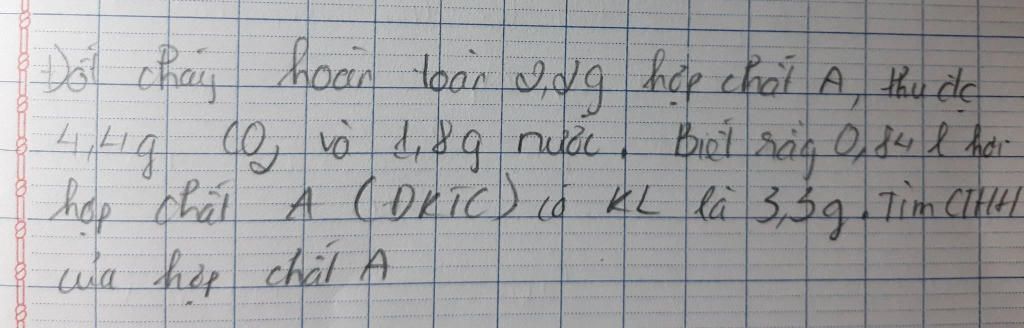 Đốt cháy hoàn toàn 2,2g hợp chất A, thu đc
4,4g CO2 và 1,8g nước. Biết rằg 0,84 l hơi
hợp chất A (ĐKTC) có KL là 3,3g. Tìm CTHH
của hợp chất A